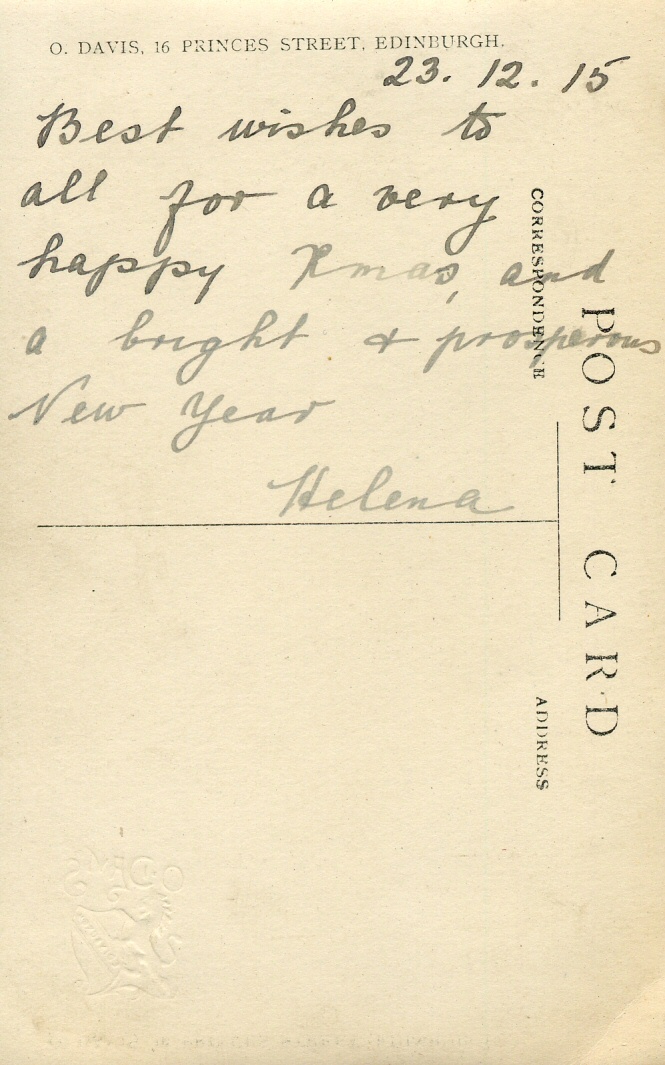 O. DAVIS, 16 PRINCES STREET, EDINBURGH.
23. 12. 15
Best wishes to
all for a very
happy Xmas, and
a bright & prosperous
New Year
Helena
POST CARD
CORRESPONDENCE
ADDRESS
O. DAVIS